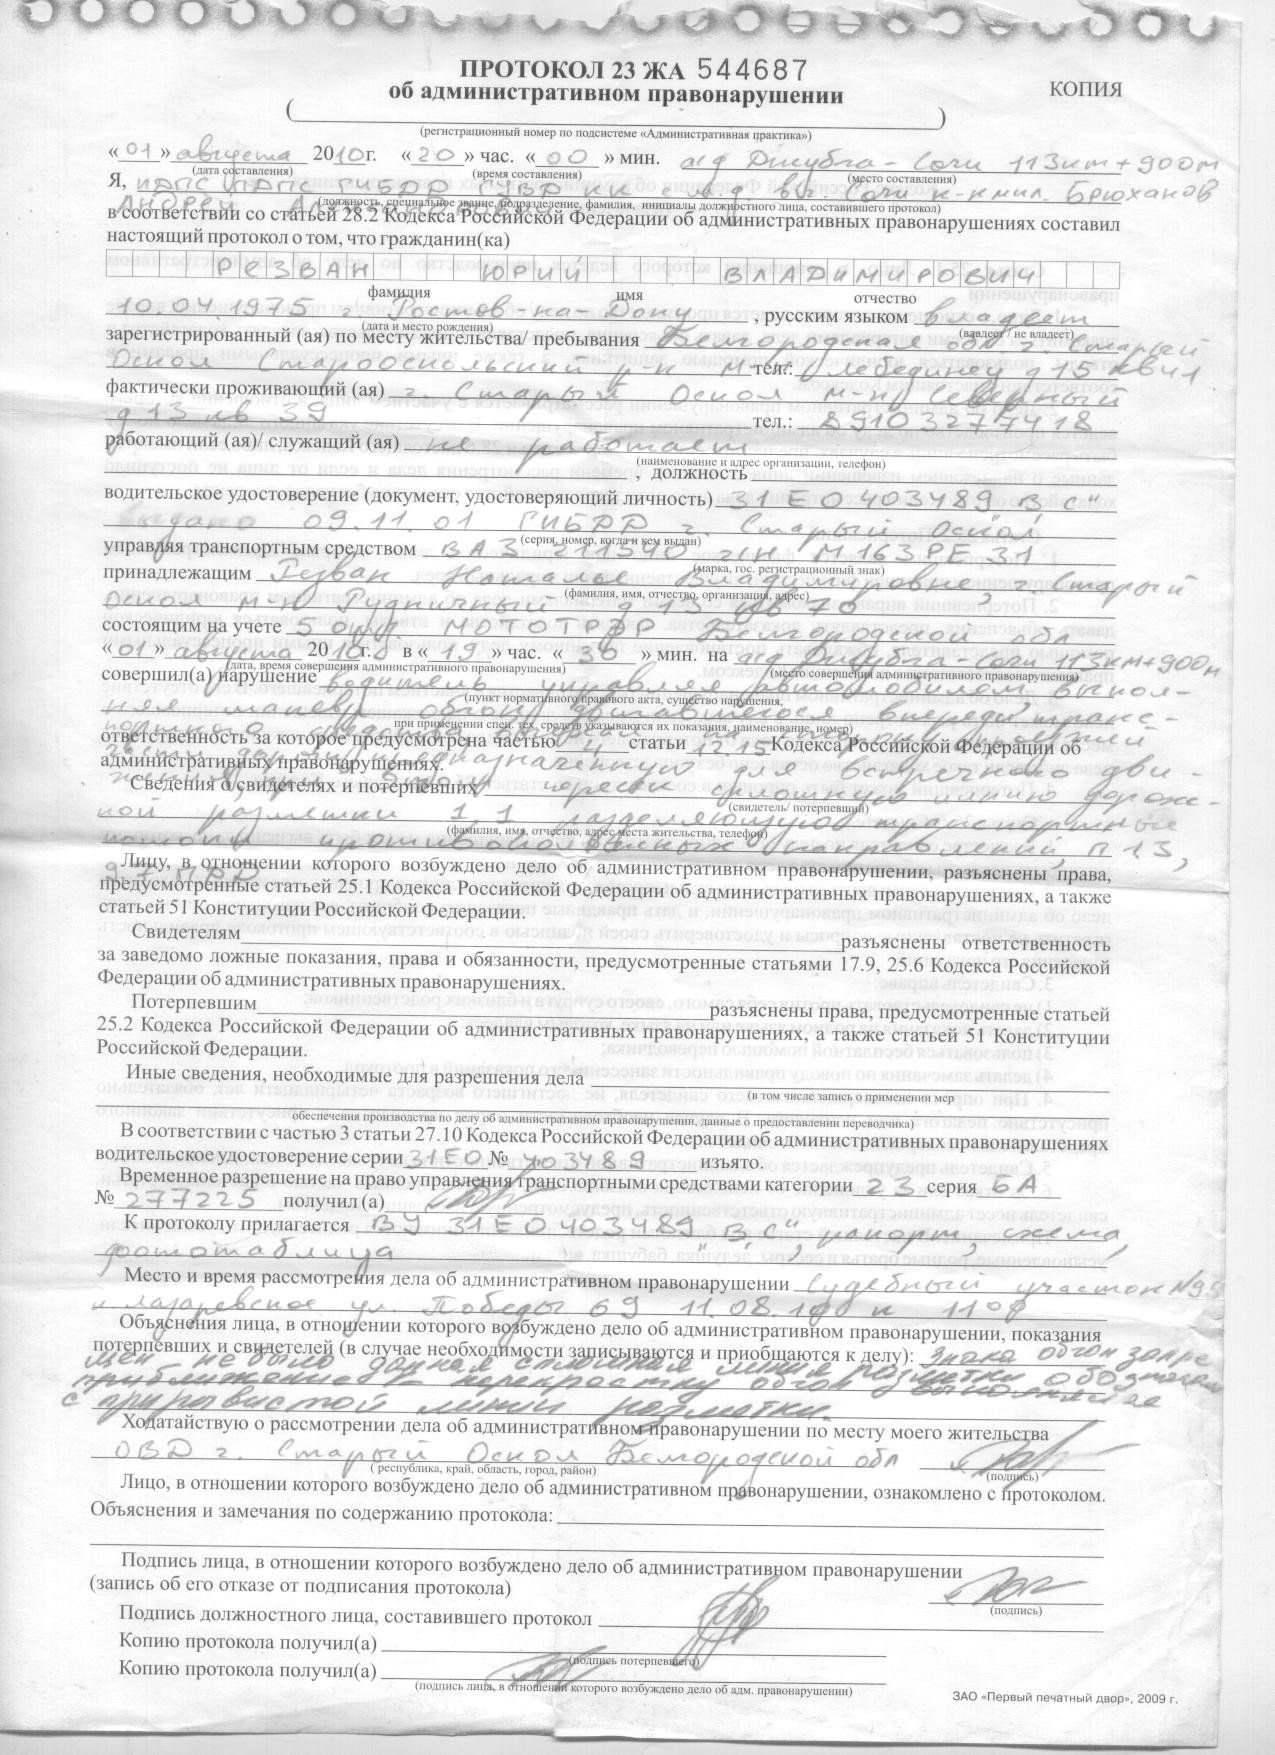 ПРОТОКОЛ 23 ЖА 544687
об административном правонарушении
КОПИЯ
(регистрационный номер по подсистеме «Административная практика»)
«01» августа 2010г. «20» час. «00» мин. а/д Джубга-Сочи 113км+900м
(дата составления) (время составления) (место составления)
Я, ИДПС ГИБДД ГУВД КК г. Сочи к-н мил. Брюханов
(должность, специальное звание, подразделение, фамилия, инициалы должностного лица, составившего протокол)
Андрей
в соответствии со статьей 28.2 Кодекса Российской Федерации об административных правонарушениях составил
настоящий протокол о том, что гражданин(ка)
РЕЗВАН ЮРИЙ ВЛАДИМИРОВИЧ
фамилия имя отчество
10.04.1975 г Ростов-на-Дону, русским языком владеет
(дата и место рождения) (владеет / не владеет)
зарегистрированный (ая) по месту жительства/ пребывания Белгородская обл г. Старый
Оскол Старооскольский р-н м-н Лебединец д 15 кв 41 тел.:
фактически проживающий (ая) г. Старый Оскол м-н Северный
д 13 кв 39 тел.: 89103277418
работающий (ая)/ служащий (ая) не работает
(наименование и адрес организации, телефон)
, должность
водительское удостоверение (документ, удостоверяющий личность) 31ЕО403489 В С"
выдано 09.11.01 ГИБДД г. Старый Оскол
(серия, номер, когда и кем выдан)
управляя транспортным средством ВАЗ 211540 г/н М163РЕ31
(марка, гос. регистрационный знак)
принадлежащим Резван Наталье Владимировне, г. Старый
(фамилия, имя, отчество, организация, адрес)
Оскол м-н Рудничный д 13 кв 70
состоящим на учете 5 отд. МОТОТРЭР Белгородской обл
«01» августа 2010г. в «19» час. «36» мин. на а/д Джубга-Сочи 113км+900м
(дата, время совершения административного правонарушения) (место совершения административного правонарушения)
совершил(а) нарушение водитель управляя автомобилем, выпол-
(пункт нормативного правового акта, существо нарушения,
няя маневр обгона двигавшегося впереди транс-
при применении спец. тех, средств указываются их показания, наименование, номер)
портного средства выехал на сторону проезжей
ответственность за которое предусмотрена частью 4 статьи 12.15 Кодекса Российской Федерации об
части дороги предназначенную для встречного дви-
административных правонарушениях.
жения, при этом пересек сплошную линию дорож-
Сведения о свидетелях и потерпевших
(свидетель/ потерпевший)
ной разметки 1.1 разделяющую транспортные
(фамилия, имя, отчество, адрес места жительства, телефон)
потоки противоположных направлений, п 1.3,
9.7 ПДД
Лицу, в отношении которого возбуждено дело об административном правонарушении, разъяснены права,
предусмотренные статьей 25.1 Кодекса Российской Федерации об административных правонарушениях, а также
статьей 51 Конституции Российской Федерации.
Свидетелям разъяснены ответственность
за заведомо ложные показания, права и обязанности, предусмотренные статьями 17.9, 25.6 Кодекса Российской
Федерации об административных правонарушениях.
Потерпевшим разъяснены права, предусмотренные статьей
25.2 Кодекса Российской Федерации об административных правонарушениях, а также статьей 51 Конституции
Российской Федерации.
Иные сведения, необходимые для разрешения дела
(в том числе запись о применении мер
обеспечения производства по делу об административном правонарушении, данные о предоставлении переводчика)
В соответствии с частью 3 статьи 27.10 Кодекса Российской Федерации об административных правонарушениях
водительское удостоверение серии 31ЕО № 403489 изъято.
Временное разрешение на право управления транспортными средствами категории 23 серия БА
№ 277225 получил (а)
К протоколу прилагается ВУ 31ЕО403489 „В, С“, рапорт, схема,
фототаблица
Место и время рассмотрения дела об административном правонарушении Судебный участок №95
п Лазаревское ул. Победы 69 11.08.10 к 11 00
Объяснения лица, в отношении которого возбуждено дело об административном правонарушении, показания
потерпевших и свидетелей (в случае необходимости записываются и приобщаются к делу): знака обгон запре
щен не было данная сплошная линия разметки обозначает
приближение к перекрестку обгон
с прерывистой линии разметки.
Ходатайствую о рассмотрении дела об административном правонарушении по месту моего жительства
ОВД г. Старый Оскол Белгородской обл
( республика, край, область, город, район) (подпись)
Лицо, в отношении которого возбуждено дело об административном правонарушении, ознакомлено с протоколом.
Объяснения и замечания по содержанию протокола:
Подпись лица, в отношении которого возбуждено дело об административном правонарушении
(запись об его отказе от подписания протокола)
(подпись)
Подпись должностного лица, составившего протокол
Копию протокола получил(а)
(подпись потерпевшего)
Копию протокола получил(а)
(подпись лица, в отношении которого возбуждено дело об адм. правонарушении)
ЗАО «Первый печатный двор», 2009 г.